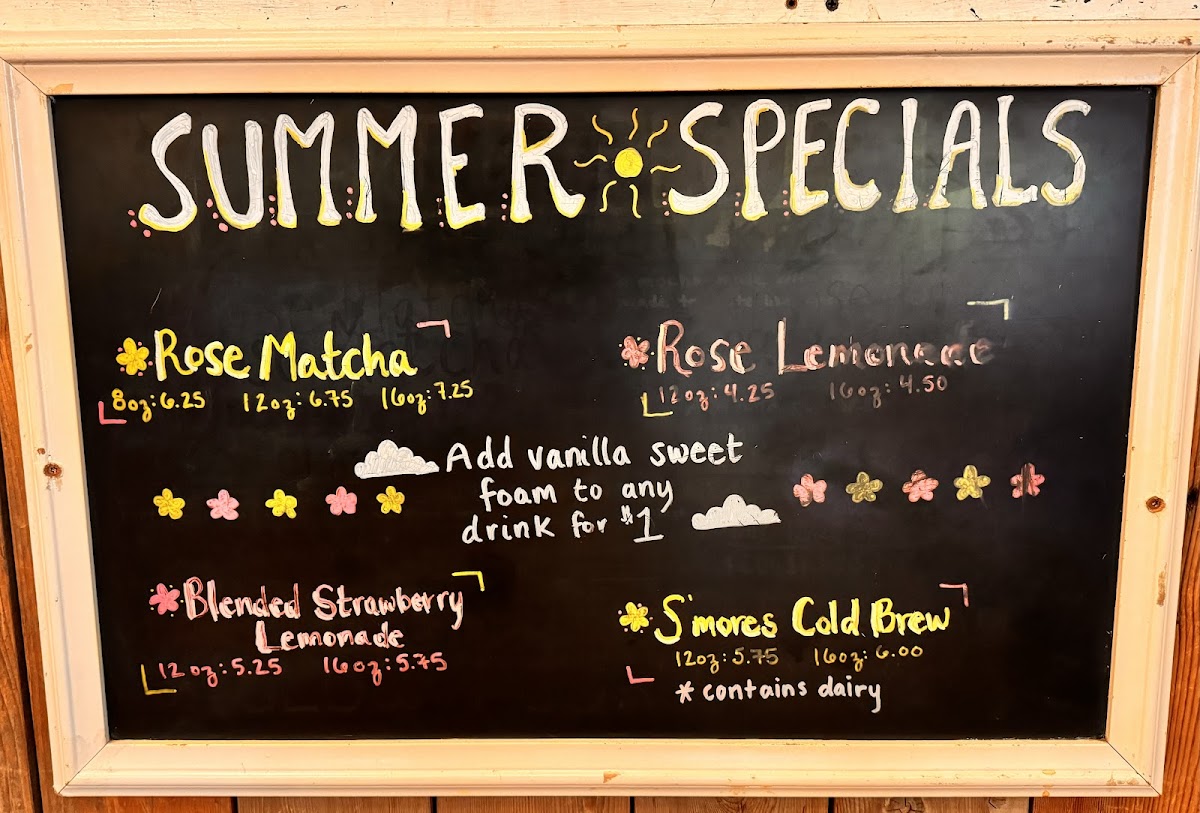 SUMMER SPECIALS
Rose Matcha
8oz: 6.25 12oz: 6.75 16oz: 7.25
Rose Lemonade
12oz: 4.25 16oz: 4.50
Add vanilla sweet
foam to any
drink for $1
Blended Strawberry
Lemonade
12 oz: 5.25 16oz: 5.75
S'mores Cold Brew
12oz: 5.75 16oz: 6.00
* contains dairy